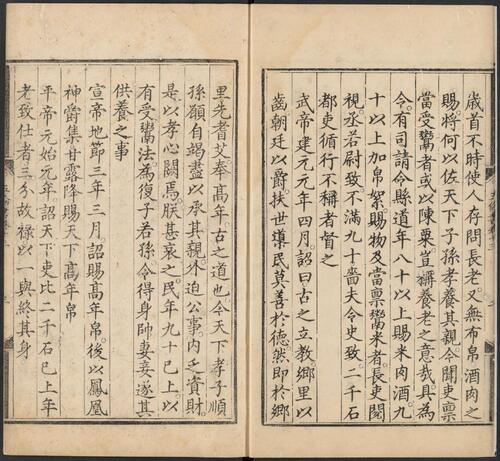 歲首不時使人存問長老又無布帛酒肉之
賜將何以佐天下子孫孝養其親今聞吏稟
當受鬻者或以陳粟豈稱養老之意哉具為
令有司請令縣道年八十以上賜米肉酒九
十以上加帛絮賜物及當稟鬻米者長吏閱
視丞若尉致不滿九十嗇夫令史致二千石
都吏循行不稱者督之
武帝建元元年四月詔曰古之立教鄉里以
齒朝廷以爵扶世導民莫善於德然即於鄉
里先耆艾奉高年古之道也今天下孝子順
孫願自竭盡以承其親外迫公事內乏資財
是以孝心闕焉朕甚哀之民年九十已上以
有受鬻法為復子若孫令得身帥妻妾遂其
供養之事
宣帝地節三年三月詔賜高年帛後以鳳凰
神爵集甘露降賜天下高年帛
平帝元始元年詔天下吏比二千石已上年
老致仕者三分故祿以一與終其身